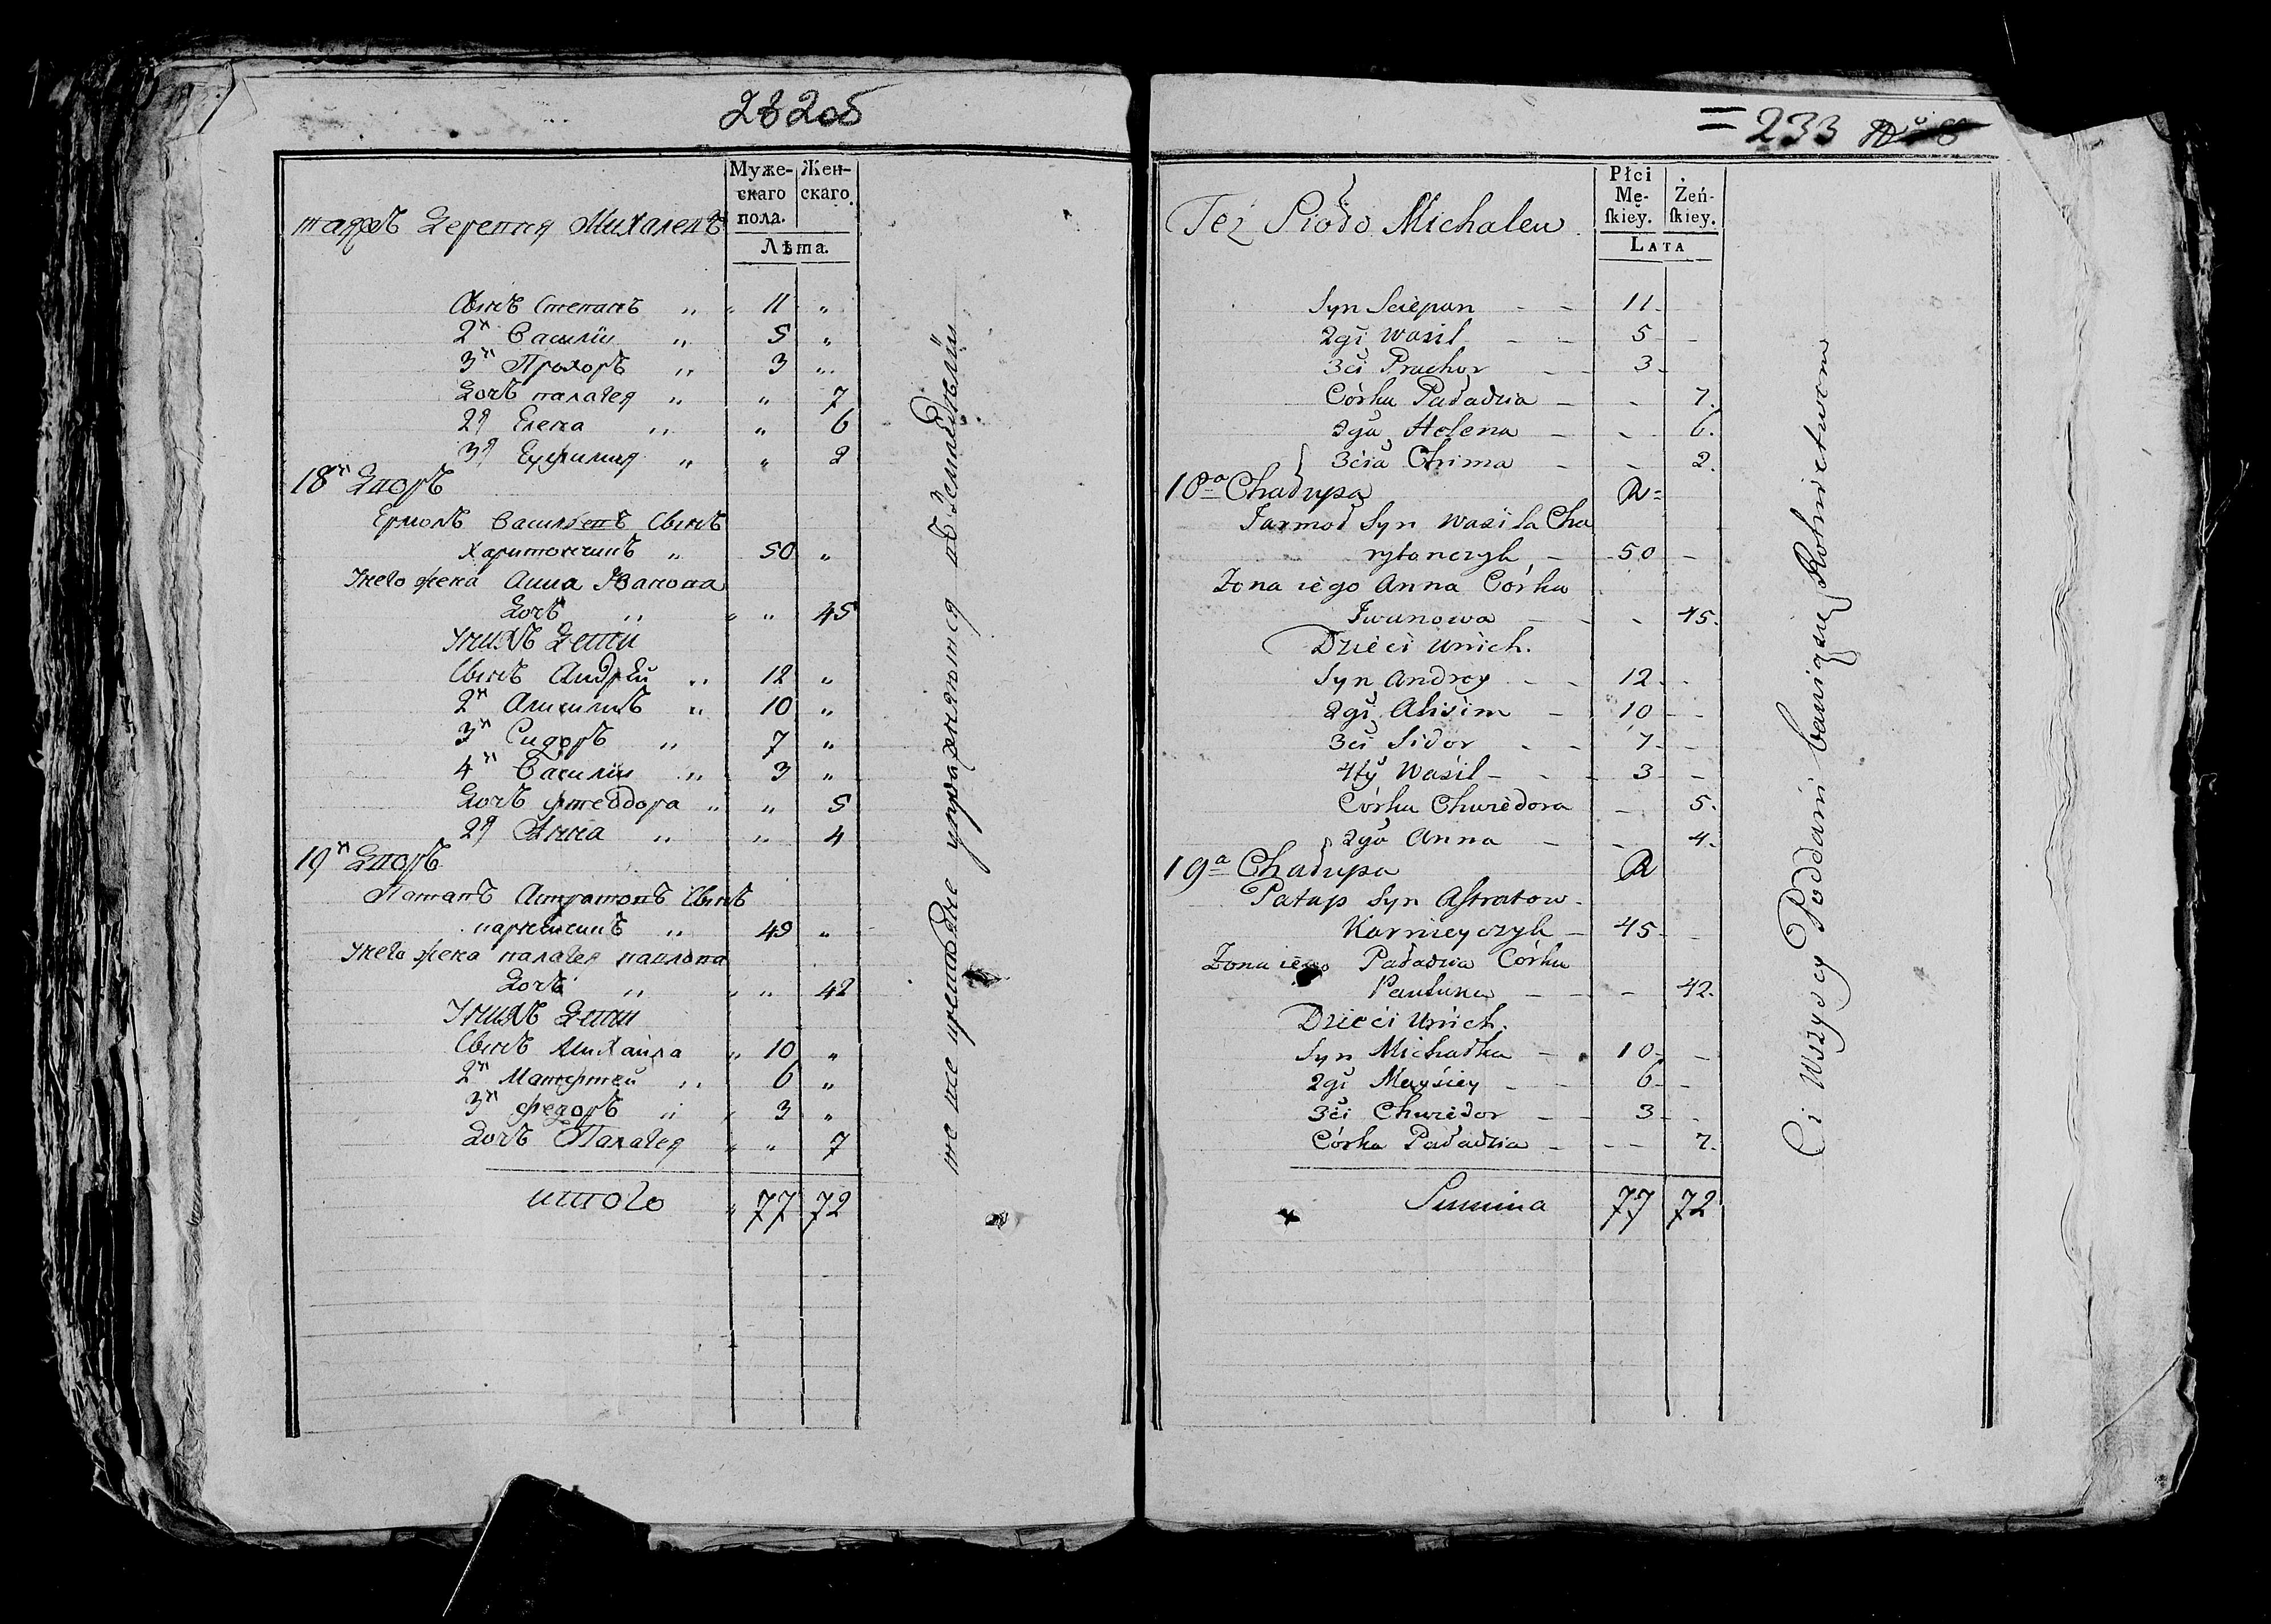 232об
Муже-
скаго
пола.
Жен-
скаго.
Лѣта.
таяжъ Деревня Михалевъ
Сынъ Степанъ „ „ 11 „
2й Василiй „ 5 „
3й Прохоръ „ 3 „
Дочь палагея „ „ 7
2я Елена „ „ 6
3я Ефимия „ „ 2
18й Дворъ
Ермолъ Васильевъ Сынъ
Харитончикъ „ 50 „
Унего жена Анна Иванова
Дочь „ „ „ 45
Унихъ Дети
Сынъ Андрей „ 12 „
2й Анисимъ „ 10 „
3й Сидоръ „ 7 „
4й Василiй „ 3 „
Дочь фтеодора „ „ 5
2я Анна „ „ 4
19й Дворъ
Патапъ Астратовъ Сынъ
„ 49 „
Унего жена палагея павлова
Дочь „ „ „ 42
Унихъ Дети
Сынъ Михайла „ 10 „
2й Матфтей „ 6 „
3й федоръ „ „ 3 „
Дочь Палагея „ „ 7
итого „ 77 72
те все крестьяне упражняются въ Земледѣлiи
= 233
Płci
Mę-
skiey.
Żeń-
skiey.
LATA
Też Sioło Michalew
Syn Sciepan - - 11 -
2gi Wasil - - 5 -
3ci Prachor - 3 -
Córka Pałazia - - 7.
2ga Helena - - 6.
3cia Chima - - 2.
18a Chałupa R =
Jarmoł Syn Wasila Cha
rytonczyk - 50 -
Zona iego Anna Córka
Iwanowa - - 45.
Dzieci Unich.
Syn Andrey - - 12 -
2gi Alisim - 10 -
3ci Sidor - - 7 -
4ty Wasil - - 3 -
Córka Chwiedora - 5.
2ga Anna - - 4.
19a Chałupa R
Patap Syn Astratow -
Karnieyczyk - 45 -
Zona iego Pałazia Córka
- - 42.
Dzieci Unich.
Syn Michałka - 10 -
2gi Maysiey - - 6 -
3ci Chwiedor - - 3 -
Córka Pałazia - - - 7.
Summa 77 72
Ci Wszyscy Poddani bawią się Rolnictwem